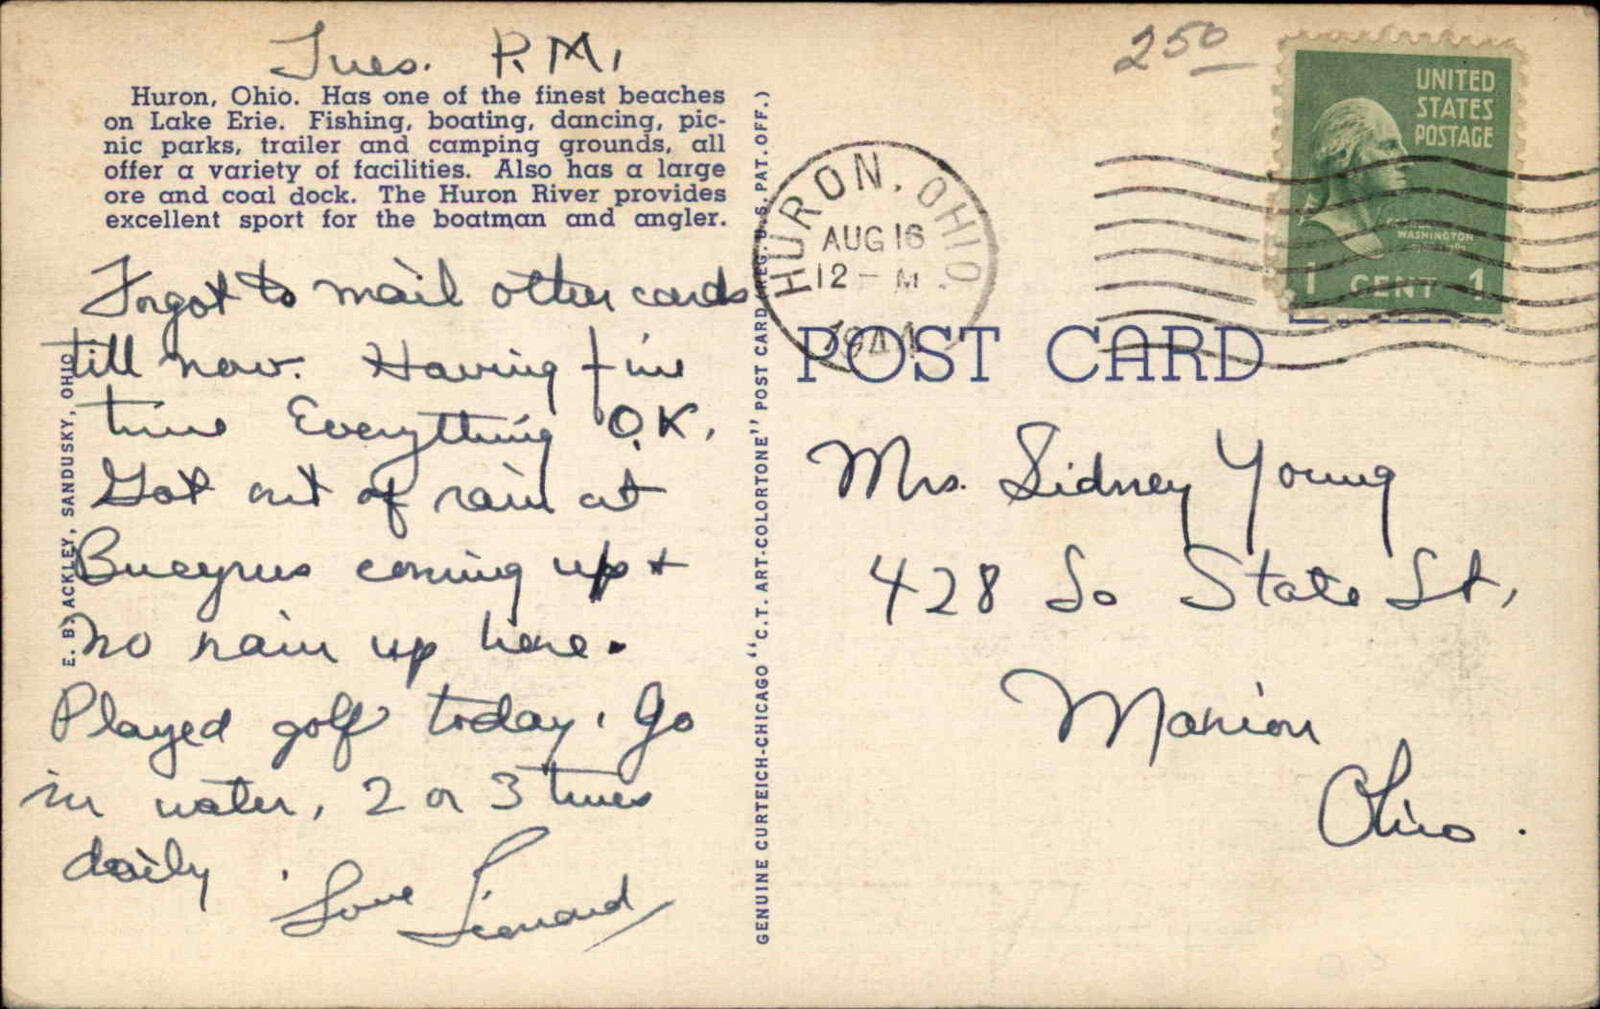 Tues. P.M.
Huron, Ohio. Has one of the finest beaches
on Lake Erie. Fishing, boating, dancing, pic-
nic parks, trailer and camping grounds, all
offer a variety of facilities. Also has a large
ore and coal dock. The Huron River provides
excellent sport for the boatman and angler.
Forgot to mail other cards
till now. Having fine
time Everything O.K.
Got out of rain at
Bucyrus coming up +
no rain up here.
Played golf today. Go
in water, 2 or 3 times
daily.
Love Leonard
E. B. ACKLEY, SANDUSKY, OHIO
GENUINE CURTEICH-CHICAGO "C.T. ART-COLORTONE" POST CARD (REG. U.S. PAT. OFF.)
250
UNITED
STATES
POSTAGE
WASHINGTON
1 CENT 1
HURON, OHIO
AUG 16
12 - M
POST CARD
Mrs. Sidney Young
428 So State St,
Marion
Ohio.